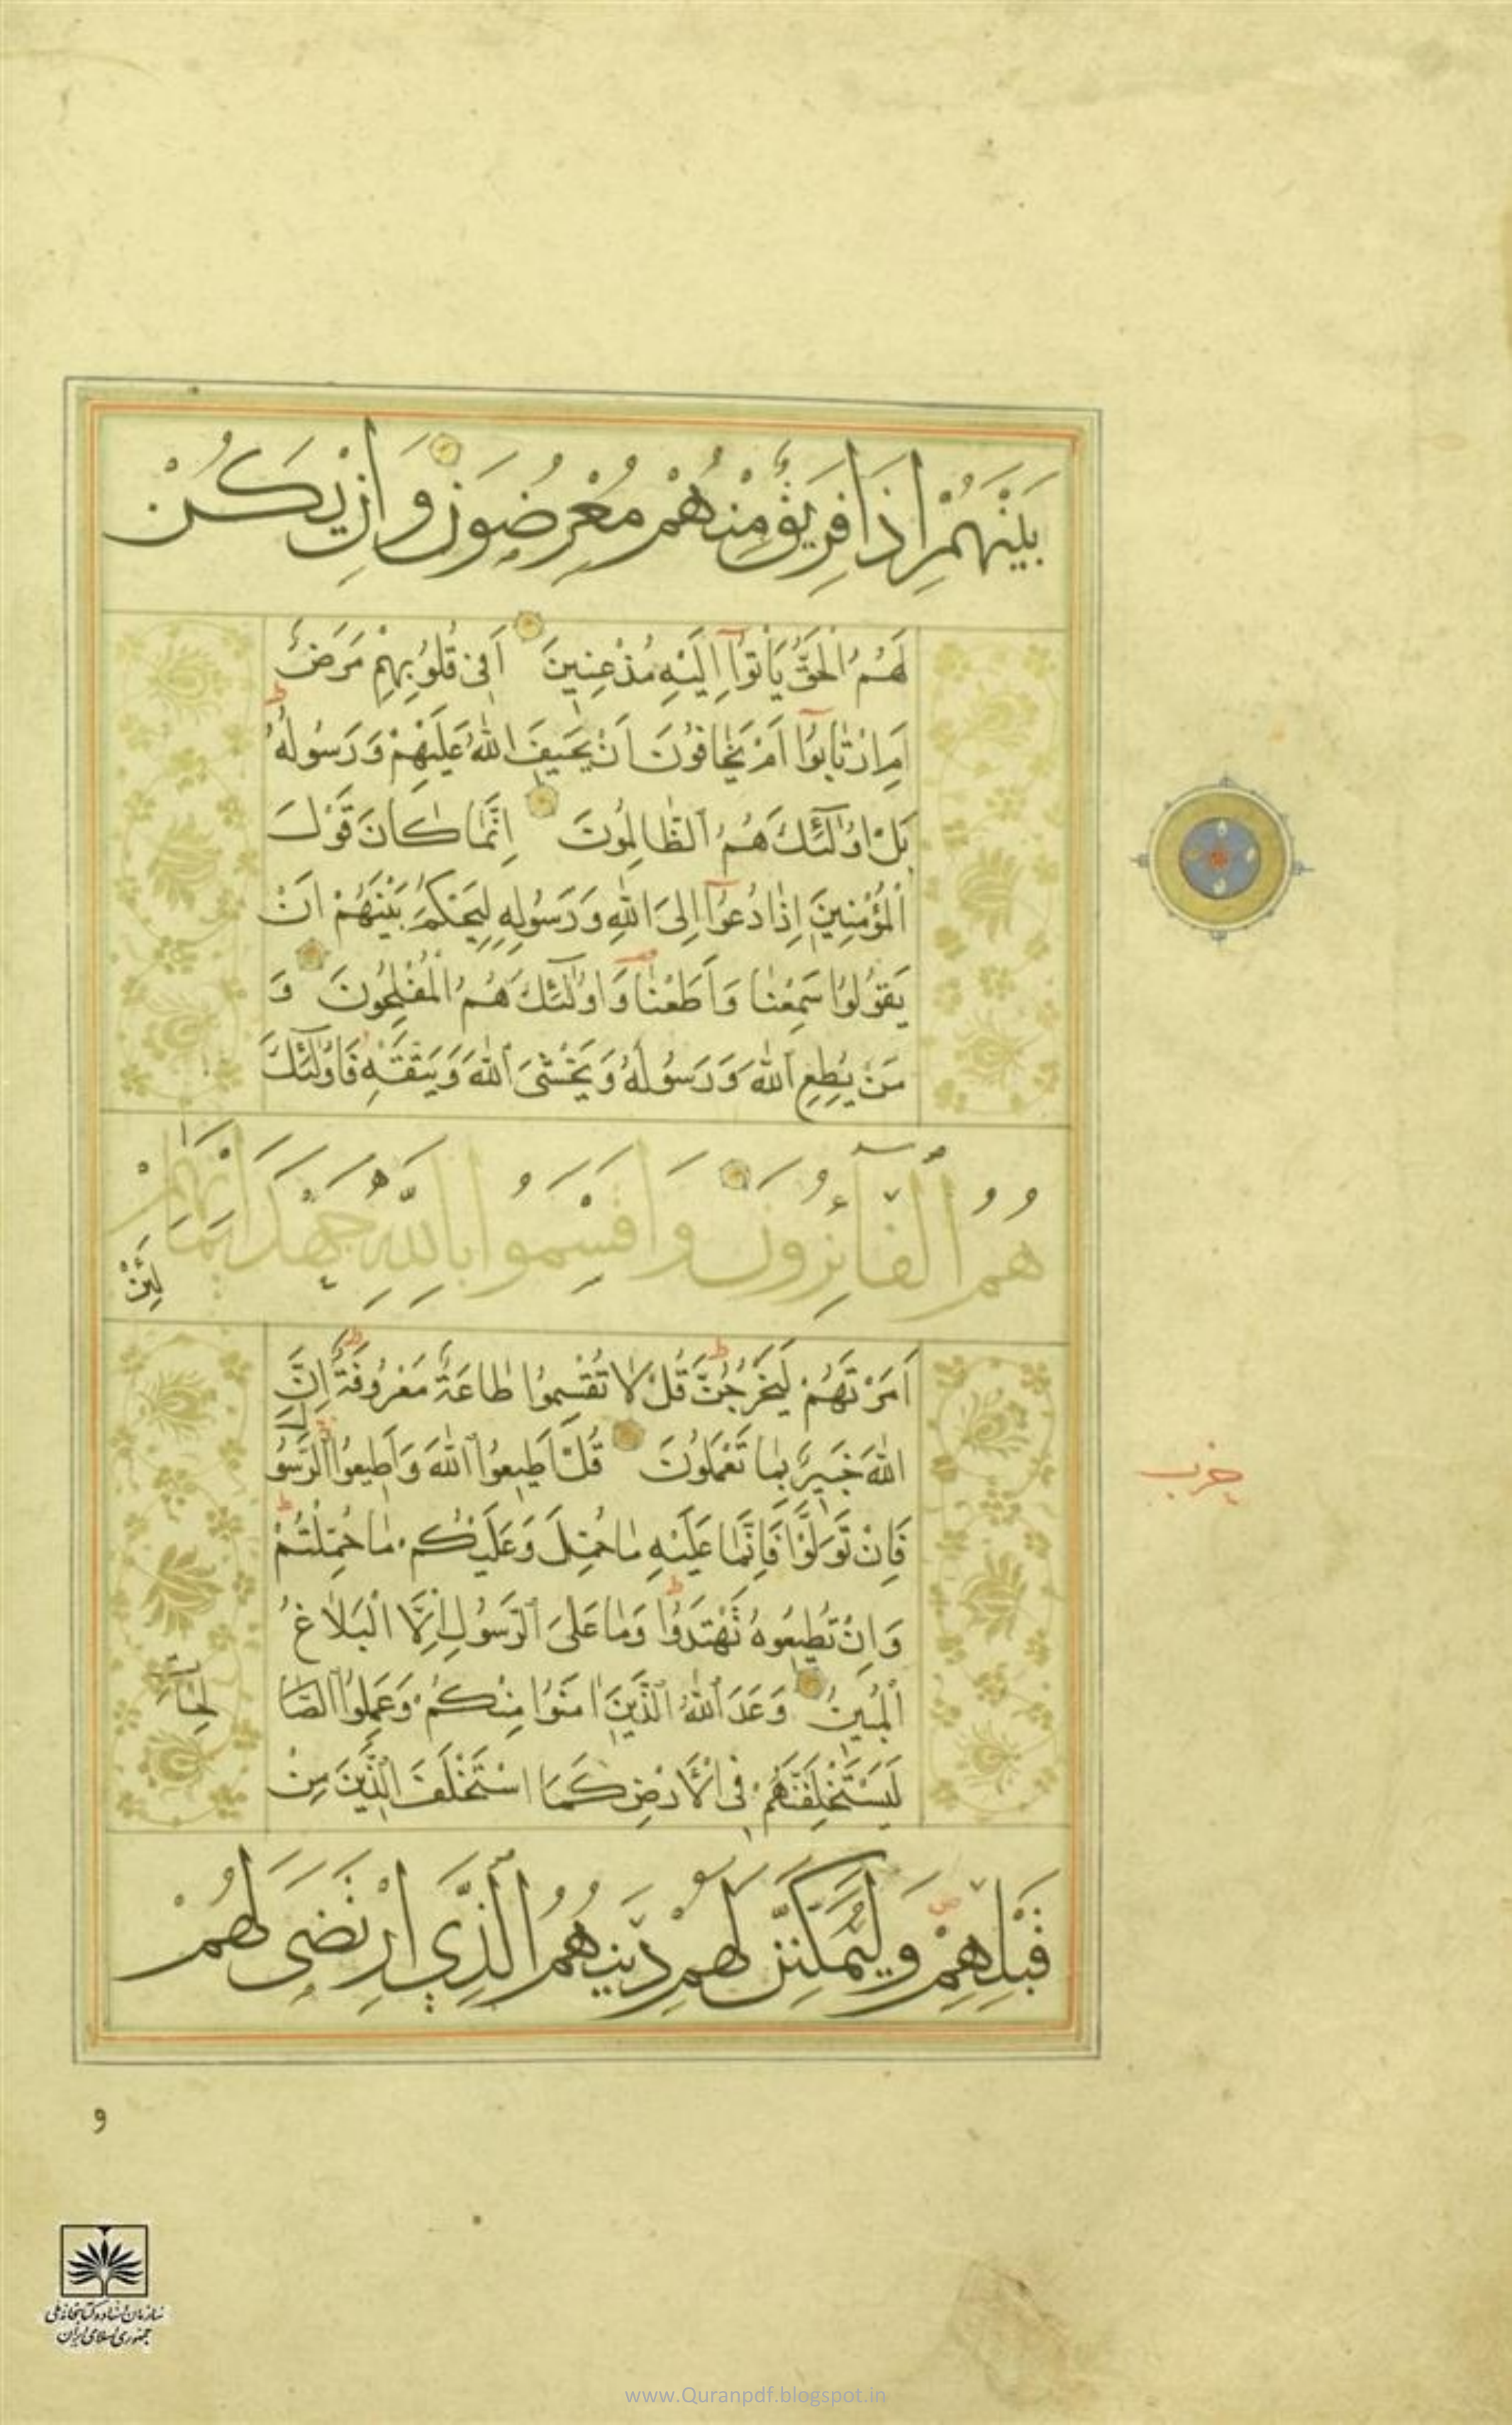 بَيْنَهُمْ اِذَا فَرِيقٌ مِنْهُمْ مُعْرِضُونَ وَاِنْ يَكُنْ
لَهُمُ الْحَقُّ يَأْتُوٓا اِلَيْهِ مُذْعِنِينَ اَفِى قُلُوبِهِمْ مَرَضٌ
ط
اَمِ ارْتَابُوٓا اَمْ يَخَافُونَ اَنْ يَحِيفَ اللّٰهُ عَلَيْهِمْ وَرَسُولُهُ
بَلْ اُولٰٓئِكَ هُمُ الظَّالِمُونَ اِنَّمَا كَانَ قَوْلَ
الْمُؤْمِنِينَ اِذَا دُعُوٓا اِلَى اللّٰهِ وَرَسُولِهِ لِيَحْكُمَ بَيْنَهُمْ اَنْ
يَقُولُوا سَمِعْنَا وَاَطَعْنَا وَاُولٰٓئِكَ هُمُ الْمُفْلِحُونَ وَ
مَنْ يُطِعِ اللّٰهَ وَرَسُولَهُ وَيَخْشَى اللّٰهَ وَيَتَّقْهِ فَاُولٰٓئِكَ
هُمُ الْفَآئِزُونَ وَاَقْسَمُوا بِاللّٰهِ جَهْدَ اَيْمَانِهِمْ
لَئِنْ
اَمَرْتَهُمْ لَيَخْرُجُنَّ ط قُلْ لَا تُقْسِمُوا طَاعَةٌ مَعْرُوفَةٌ ط اِنَّ
اللّٰهَ خَبِيرٌ بِمَا تَعْمَلُونَ قُلْ اَطِيعُوا اللّٰهَ وَاَطِيعُوا الرَّسُولَ
فَاِنْ تَوَلَّوْا فَاِنَّمَا عَلَيْهِ مَا حُمِّلَ وَعَلَيْكُمْ مَا حُمِّلْتُمْ ط
وَاِنْ تُطِيعُوهُ تَهْتَدُوا ط وَمَا عَلَى الرَّسُولِ اِلَّا الْبَلَاغُ
الْمُبِينُ وَعَدَ اللّٰهُ الَّذِينَ اٰمَنُوا مِنْكُمْ وَعَمِلُوا الصَّا
لِحَاتِ
لَيَسْتَخْلِفَنَّهُمْ فِى الْاَرْضِ كَمَا اسْتَخْلَفَ الَّذِينَ مِنْ
قَبْلِهِمْ وَلَيُمَكِّنَنَّ لَهُمْ دِينَهُمُ الَّذِي ارْتَضَى لَهُمْ
حزب
و
سازمان اسناد و کتابخانه ملی
جمهوری اسلامی ایران
www.Quranpdf.blogspot.in